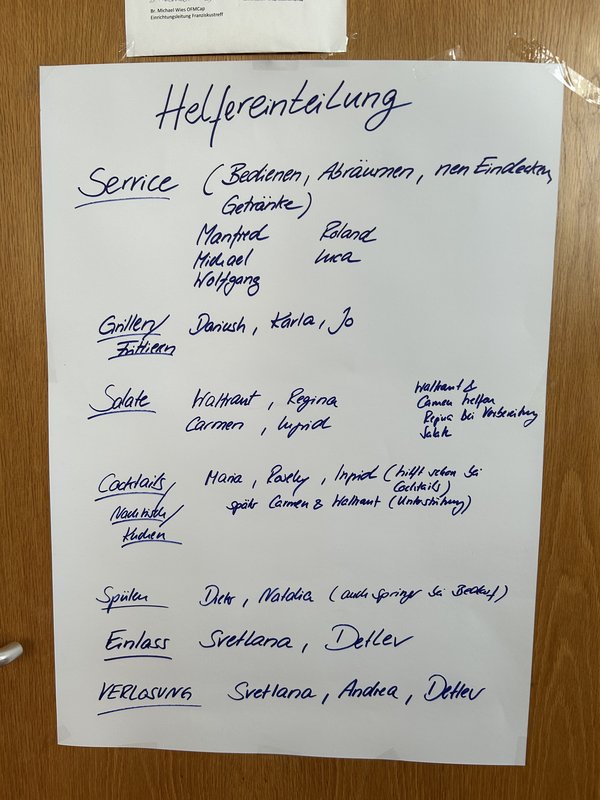 Br. Michael Wies OFMCap
Einrichtungsleitung Franziskustreff
Helfereinteilung
Service (Bedienen, Abräumen, neu Eindecken,
Getränke)
Manfred Roland
Michael Luca
Wolfgang
Grillen/ Dariush, Karla, Jo
Frittieren
Salate Waltraut, Regina
Carmen, Ingrid
Waltraut &
Carmen helfen
Regina bei Vorbereitung
Salate
Cocktails/ Maria, Rosely, Ingrid (hilft schon bei
Cocktails)
später Carmen & Waltraut (Unterstützung)
Nachtisch/
Kuchen
Spülen Dieter, Natalia (auch Springer bei Bedarf)
Einlass Svetlana, Detlev
VERLOSUNG Svetlana, Andrea, Detlev